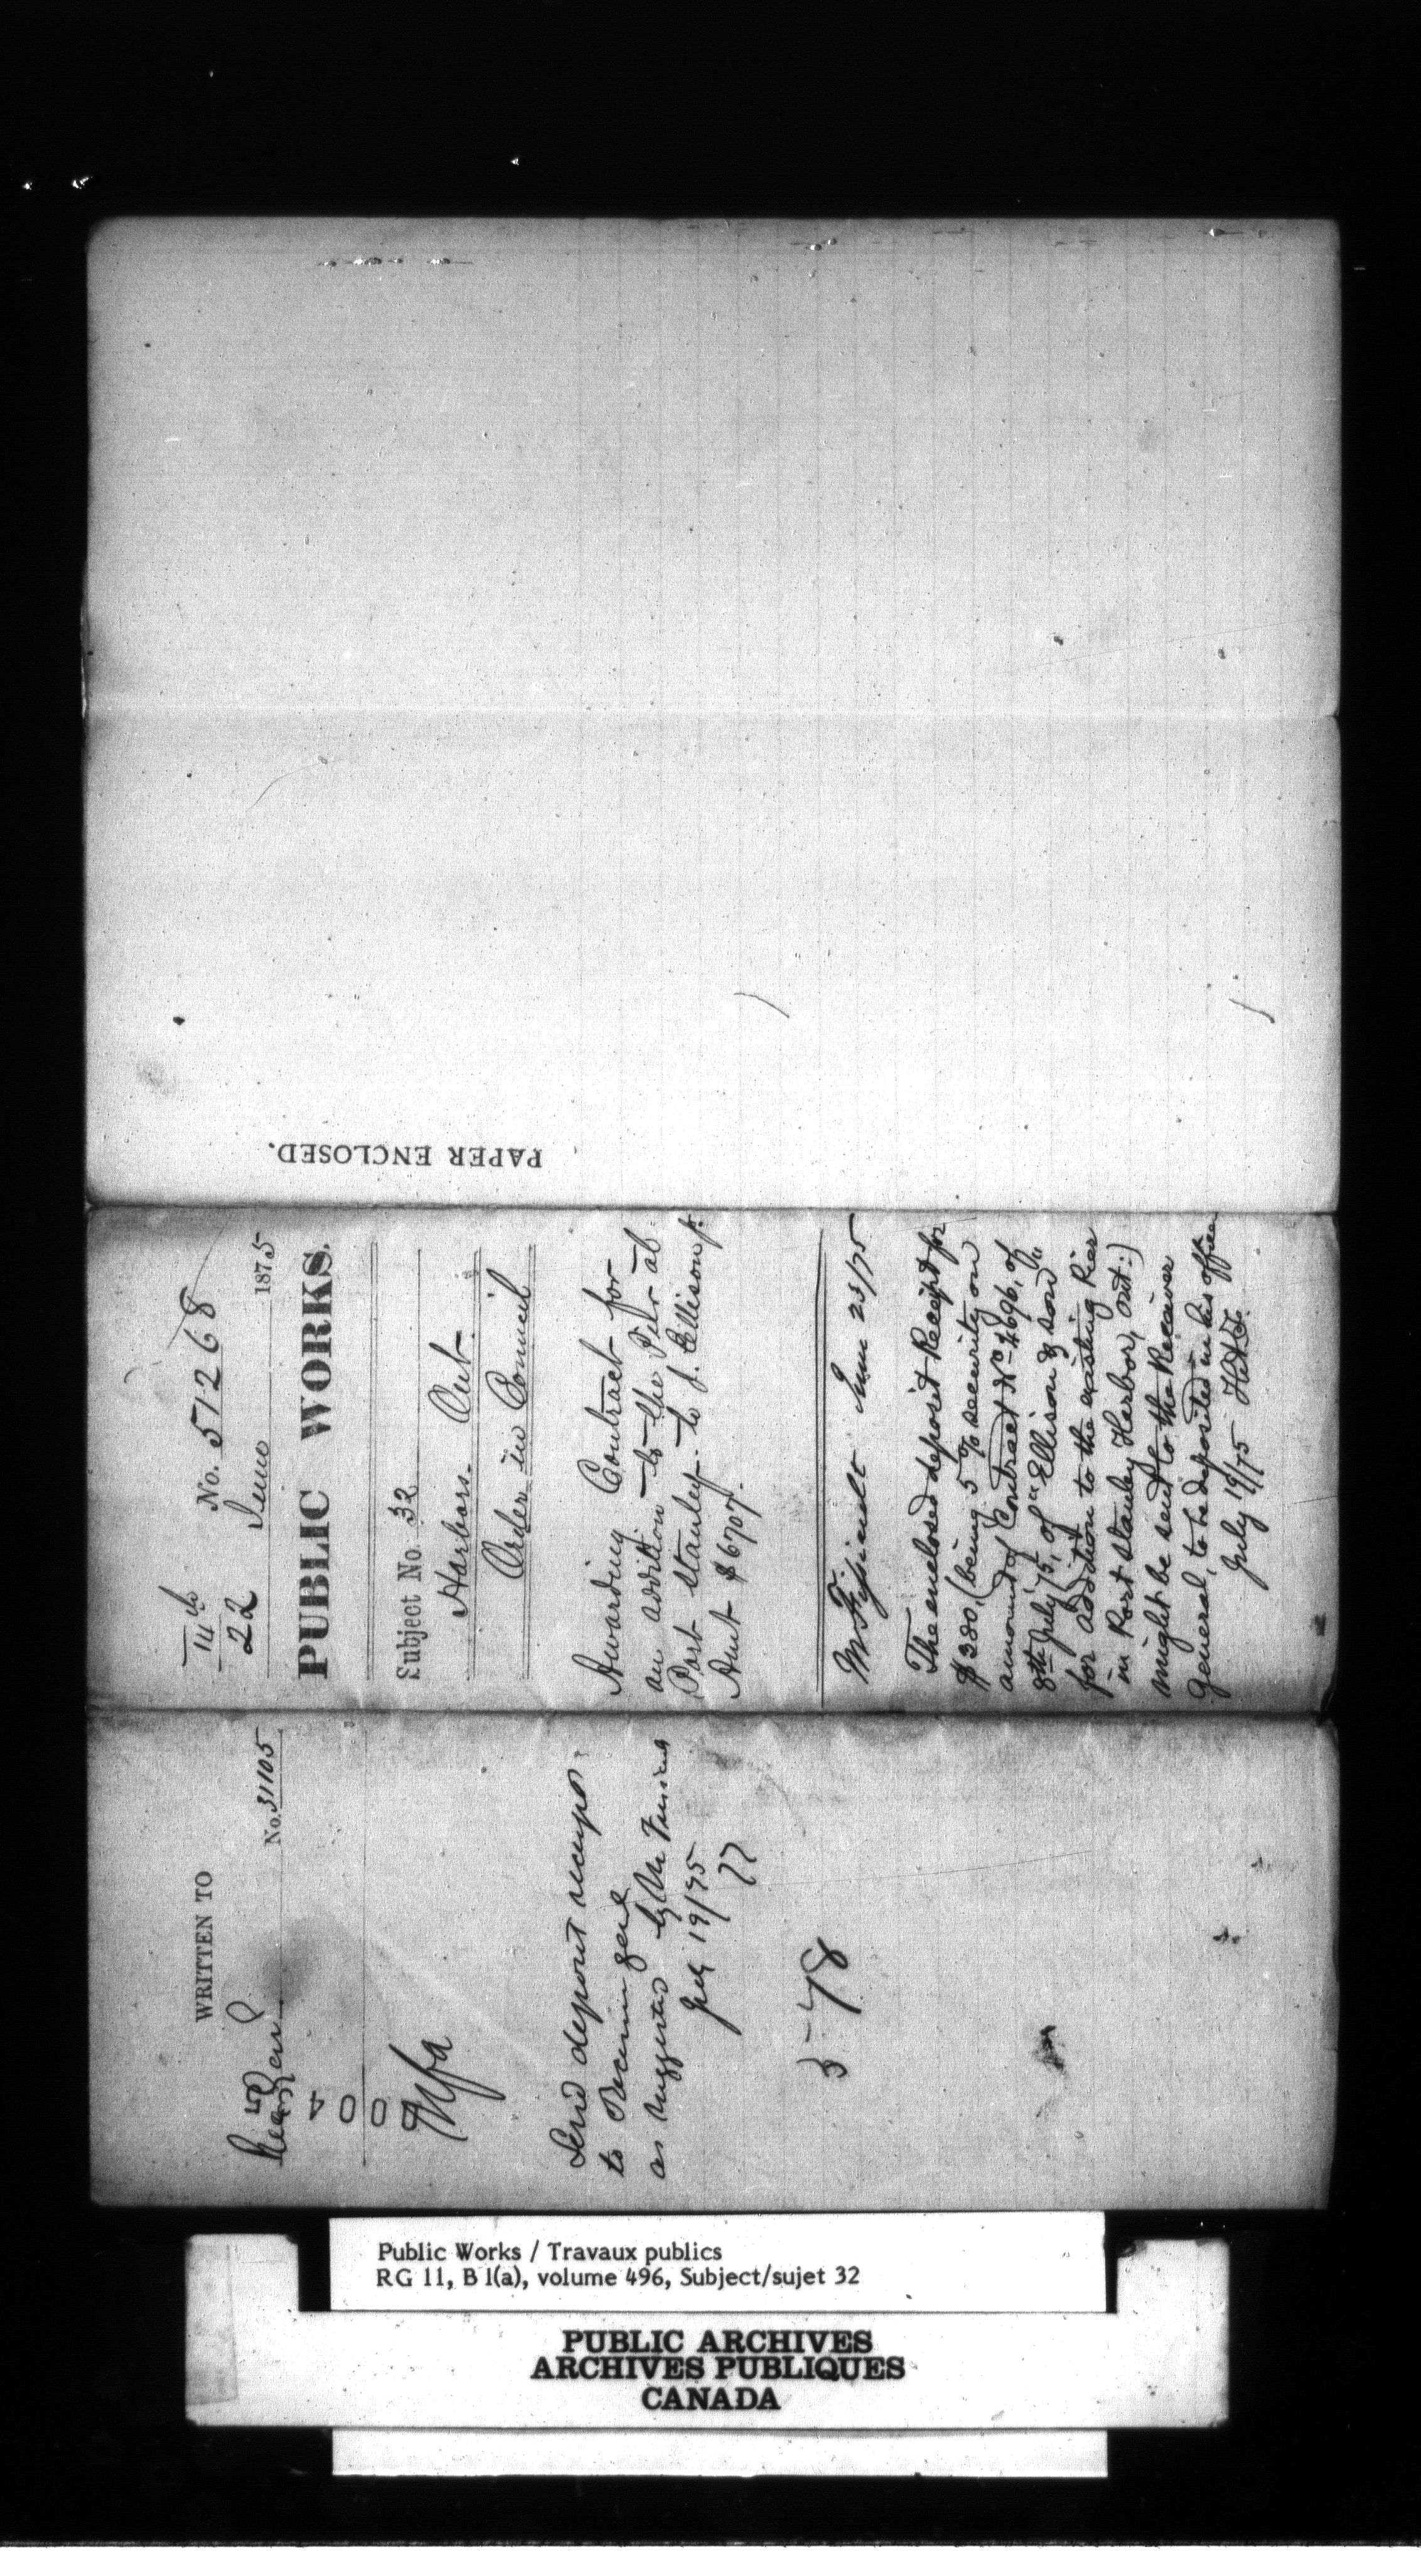 PAPER ENCLOSED.
14th
22 June 1875
No. 51268
PUBLIC WORKS.
Subject No. 32
Harbors. Ont.
Order in Council
Awarding Contract for
an addition to the Pier at
Port Stanley to J. Ellison jr.
Amt $6707.
June 23/75
The enclosed deposit Receipt for
$380, (being 5% security on
amount of Contract No 4696, of
8th July /75, of "Ellison & Son"
for addition to the existing Pier
in Port Stanley Harbor, Ont:)
might be sent to the Receiver
General, to be deposited in his office
July 19/75
WRITTEN TO
No. 31105
Send deposit receipt
to Receiver Genl
as suggested by Mr
July 19/75
5-78
Public Works / Travaux publics
RG 11, B 1(a), volume 496, Subject/sujet 32
PUBLIC ARCHIVES
ARCHIVES PUBLIQUES
CANADA